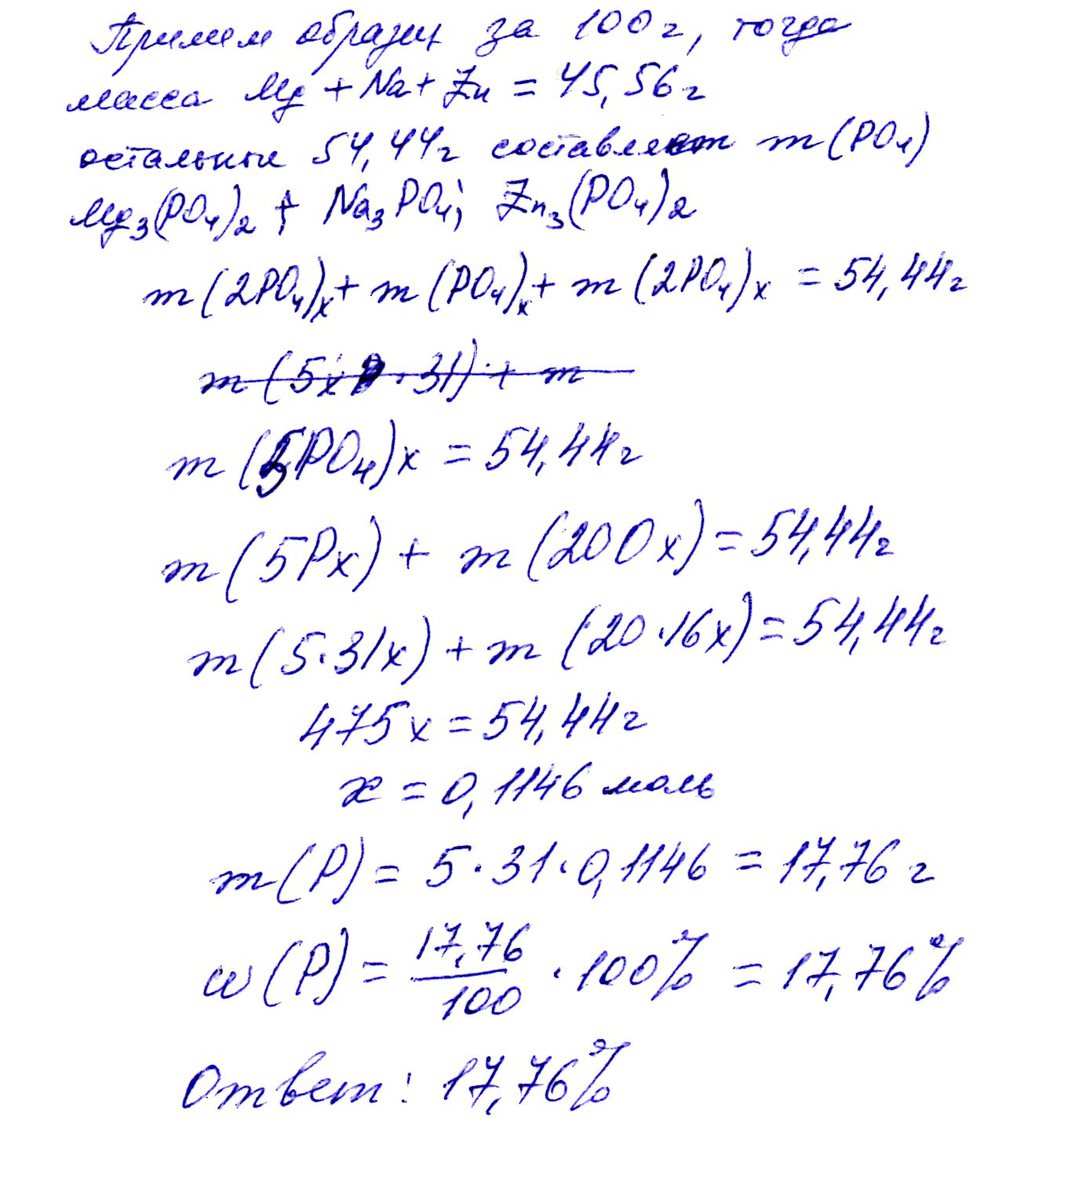 Примем образец за 100г, тогда
масса Mg + Na + Zn = 45,56г
остальные 54,44г составляет m(PO₄)
Mg₃(PO₄)₂ ; Na₃PO₄; Zn₃(PO₄)₂
m(2PO₄)x + m(PO₄)x + m(2PO₄)x = 54,44г
m(5x · 31) + m
m(5PO₄)x = 54,44г
m(5Px) + m(20Ox) = 54,44г
m(5·31x) + m(20·16x) = 54,44г
475x = 54,44г
x = 0,1146 моль
m(P) = 5·31·0,1146 = 17,76 г
w(P) = 17,76/100 · 100% = 17,76%
Ответ: 17,76%